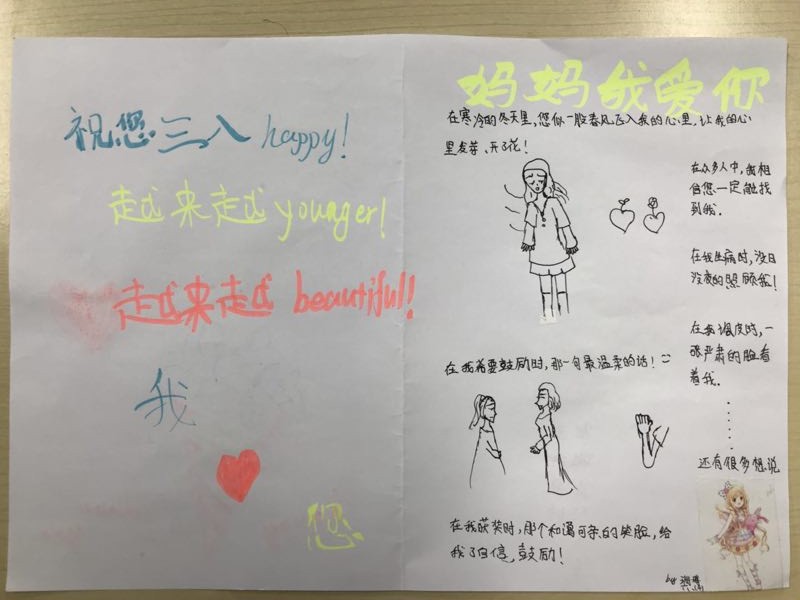 祝您三八 happy!
越来越 younger!
越来越 beautiful!
我
您
妈妈我爱你
在寒冷的冬天里,您似一股春风飞入我的心里,让我的心
里发芽、开了花!
在众多人中,我相
信您一定能找
到我.
在我生病时,没日
没夜的照顾我!
在我调皮时,一
张严肃的脸看
着我.
······
还有很多想说
在我需要鼓励时,那一句最温柔的话!
在我获奖时,那个和蔼可亲的笑脸,给
我了自信,鼓励!
by